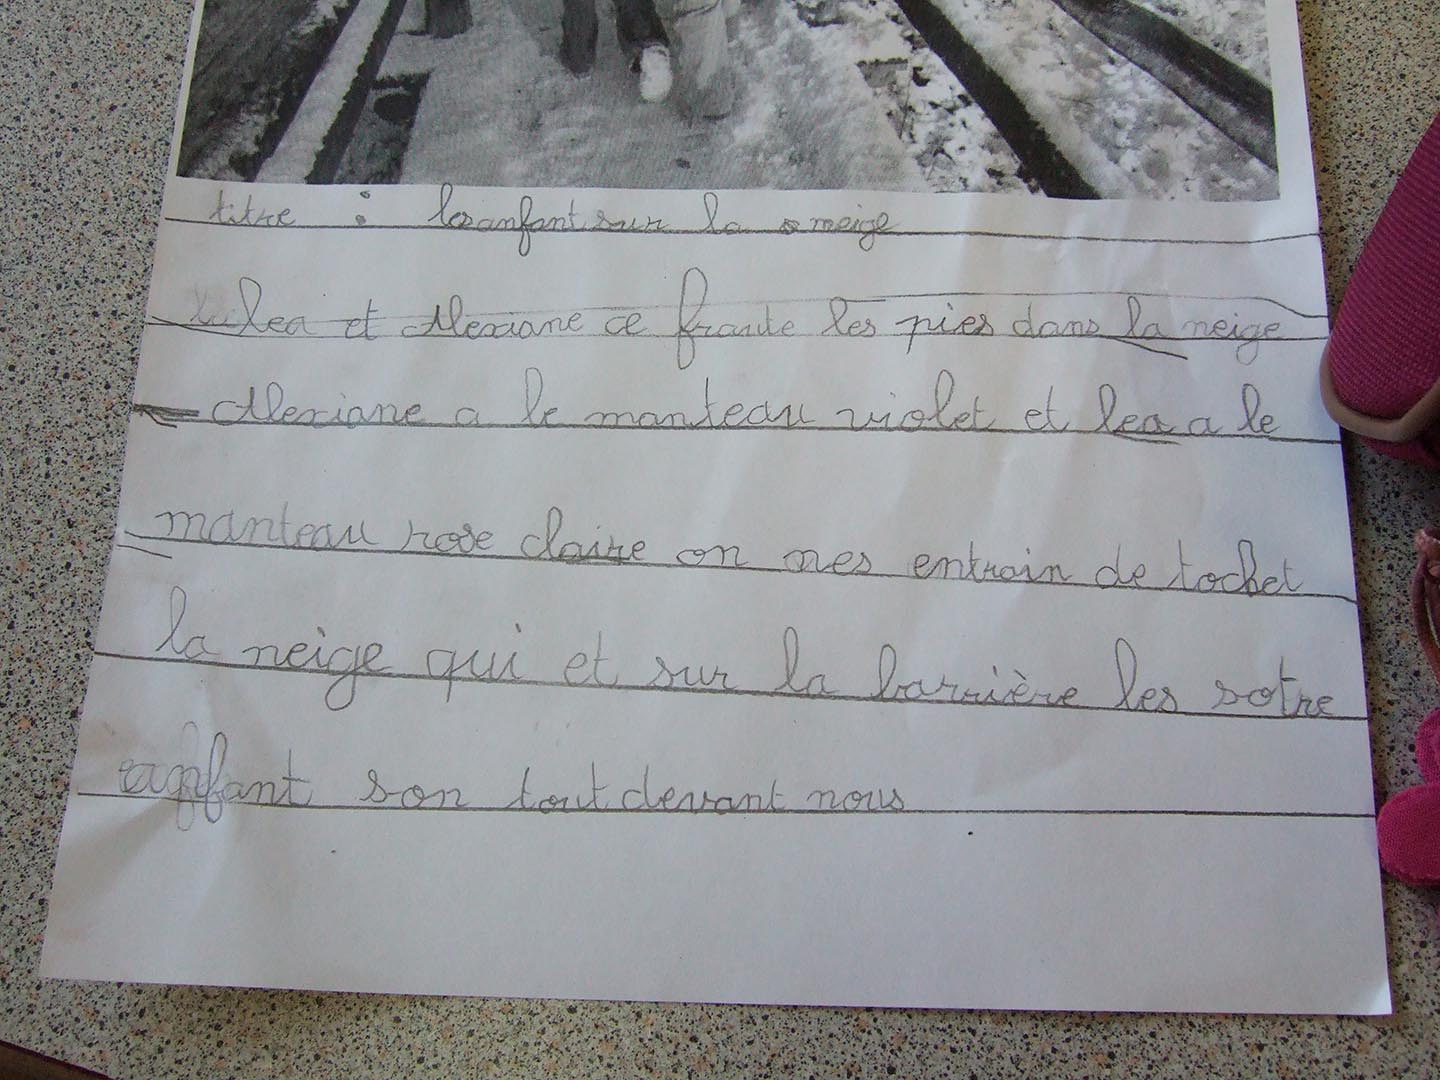 titre : lesanfant sur la neige
lea et Alexiane ce fraute les pies dans la neige
Alexiane a le manteau violet et lea a le
manteau rose claire on nes entrain de tochet
la neige qui et sur la barrière les sotre
enfant son tout devant nous